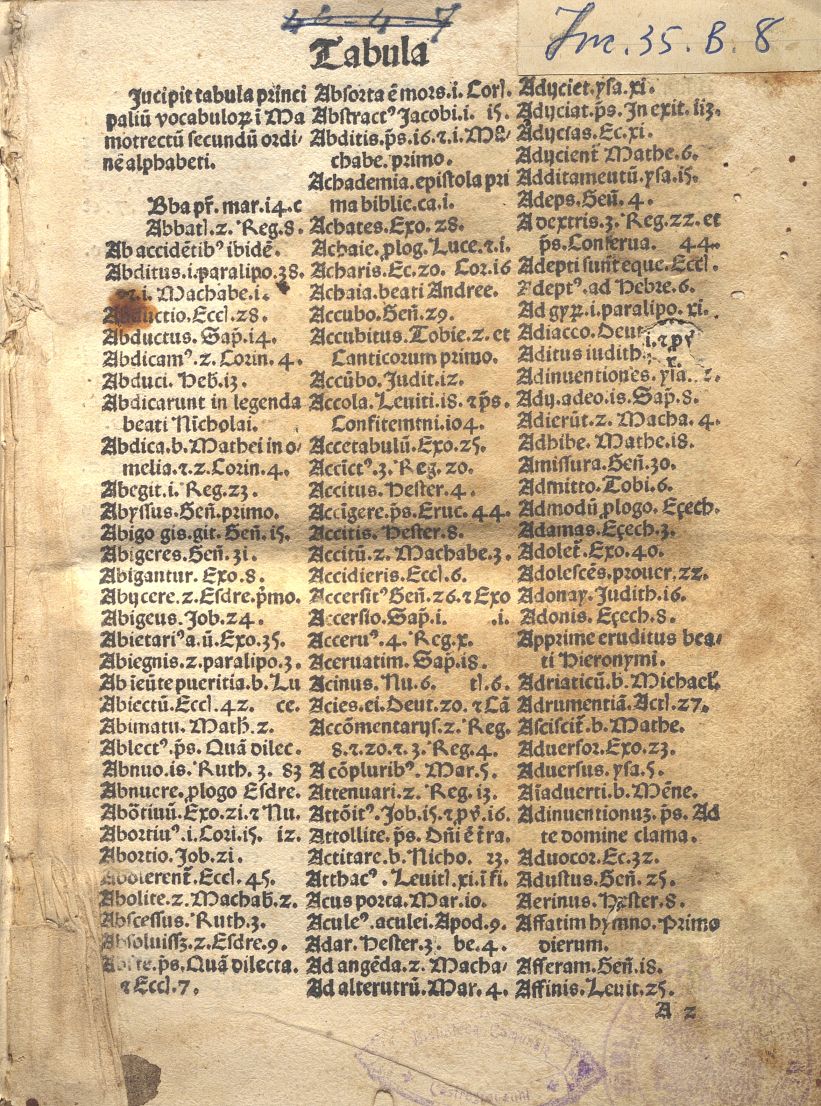 Inc. 35. B. 8
Tabula
Incipit tabula princi
paliū vocabuloꝝ ī Ma
motrectū secundū ordi-
nē alphabeti.
Bba pr̄. mar. i4. c
Abbatl. 2. Reg. 8.
Ab accidētibꝰ ibidē.
Abditus. i. paralipo. 38.
⁊. i. Machabe. i.
Abductio. Eccl. 28.
Abductus. Sap̄. i4.
Abdicamꝰ. 2. Corin. 4.
Abduci. Heb̄. i3.
Abdicarunt in legenda
beati Nicholai.
Abdica. b. Mathei in o-
melia. ⁊. 2. Corin. 4.
Abegit. i. Reg. 23.
Abyssus. Gen̄. primo.
Abigo gis. git. Gen̄. i5.
Abigeres. Gen̄. 3i.
Abigantur. Exo. 8.
Abijcere. 2. Esdre. p̄mo.
Abigeus. Job. 24.
Abietariꝰ a. ū. Exo. 35.
Abiegnis. 2. paralipo. 3.
Ab ieūte pueritia. b. Lu
Abiectū. Eccl. 42. ce.
Abimatu. Math̄. 2.
Ablectꝰ. p̄s. Quā dilec.
Abnuo. is. Ruth. 3. 83
Abnuere. plogo Esdre.
Abōtiuū. Exo. 2i. ⁊ Nu.
Abortiuꝰ. i. Cori. i5. i2.
Abortio. Job. 2i.
Abolerent̄. Eccl. 45.
Abolite. 2. Machab̄. 2.
Abscessus. Ruth. 3.
Absoluissꝫ. 2. Esdre. 9.
p̄s. Quā dilecta.
⁊ Eccl. 7.
Absorta ē mors. i. Corl.
Abstractꝰ Jacobi. i. i5.
Abditis. p̄s. i6. ⁊. i. Ma-
chabe. primo.
Achademia. epistola pri
ma biblie. ca. i.
Achates. Exo. 28.
Achaie. plog. Luce. ⁊. i.
Acharis. Ec. 20. Cor. i6
Achaia. beati Andree.
Accubo. Gen̄. 29.
Accubitus. Tobie. 2. et
Canticorum primo.
Accūbo. Judit. i2.
Accola. Leuiti. i8. ⁊ p̄s.
Confitemini. i04.
Accetabulū. Exo. 25.
Accīctꝰ. 3. Reg. 20.
Accitus. Hester. 4.
Accigere. p̄s. Eruc. 44.
Accitis. Hester. 8.
Accitū. 2. Machabe. 3.
Accidieris. Eccl. 6.
Accersitꝰ Gen̄. 26. ⁊ Exo
Accersio. Sap̄. i. .i.
Acceruꝰ. 4. Reg. x.
Aceruatim. Sap̄. i8.
Acinus. Nu. 6. tl. 6.
Acies. ei. Deut. 20. ⁊ Cā
Accōmentarijs. 2. Reg.
8. ⁊. 20. ⁊. 3. Reg. 4.
A cōpluribꝰ. Mar. 5.
Attenuari. 2. Reg. i3.
Attōitꝰ. Job. i5. ⁊ pv̄. i6.
Attollite. p̄s. Dn̄i ē t̄ra.
Actitare. b. Nicho. 23.
Atthacꝰ. Leuitl. xi. ī fi.
Acus porta. Mar. i0.
Aculeꝰ. aculei. Apod. 9.
Adar. Hester. 3. be. 4.
Ad angēda. 2. Macha-
Ad alterutrū. Mar. 4.
Adijciet. ysa. xi.
Adijciat. p̄s. In exit. ii3.
Adijcias. Ec. xi.
Adijcient̄ Mathe. 6.
Additamentū. ysa. i5.
Adeps. Gen̄. 4.
A dextris. 3. Reg. 22. et
p̄s. Conserua. 44.
Adepti sunt eque. Eccl.
Adeptꝰ. ad Hebre. 6.
Ad gyꝝ. i. paralipo. xi.
Adiacco. Deut i. ⁊ pv̄
Aditus iudith. x.
Adinuentiones. ysa.
Adij. adeo. is. Sap̄. 8.
Adierūt. 2. Macha. 4.
Adhibe. Mathe. i8.
Amissura. Gen̄. 30.
Admitto. Tobi. 6.
Admodū plogo. Eçech.
Adamas. Eçech. 3.
Adolet̄. Exo. 40.
Adolescēs. prouer. 22.
Adonay. Judith. i6.
Adonis. Eçech. 8.
Apprime eruditus bea-
ti Hieronymi.
Adriaticū. b. Michael.
Adrumentiā. Actl. 27.
Asciscit̄. b. Mathe.
Aduersor. Exo. 23.
Aduersus. ysa. 5.
Aīaduerti. b. Mēne.
Adinuentionuꝫ. p̄s. Ad
te domine clama.
Aduocor. Ec. 32.
Adustus. Gen̄. 25.
Aerinus. Hester. 8.
Affatim hymno. Primo
dierum.
Afferam. Gen̄. i8.
Affinis. Leuit. 25.
A 2